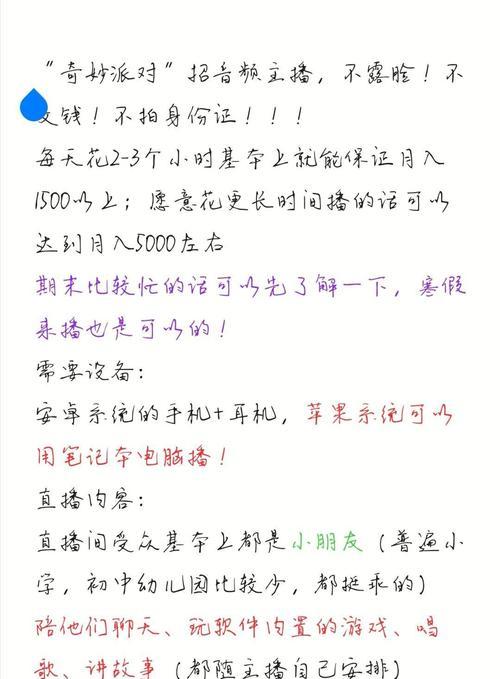 “奇妙派对”招音频主播，不露脸！不
交钱！不拍身份证！！！
每天花2-3个小时基本上就能保证月入
1500以上；愿意花更长时间播的话可以
达到月入5000左右
期末比较忙的话可以先了解一下，寒假
来播也是可以的！
需要设备：
安卓系统的手机+耳机，苹果系统可以
用笔记本电脑播！
直播内容：
直播间受众基本上都是小朋友（普遍小
学，初中幼儿园比较少，都挺乖的）
陪他们聊天、玩软件内置的游戏、唱
歌、讲故事（都随主播自己安排）